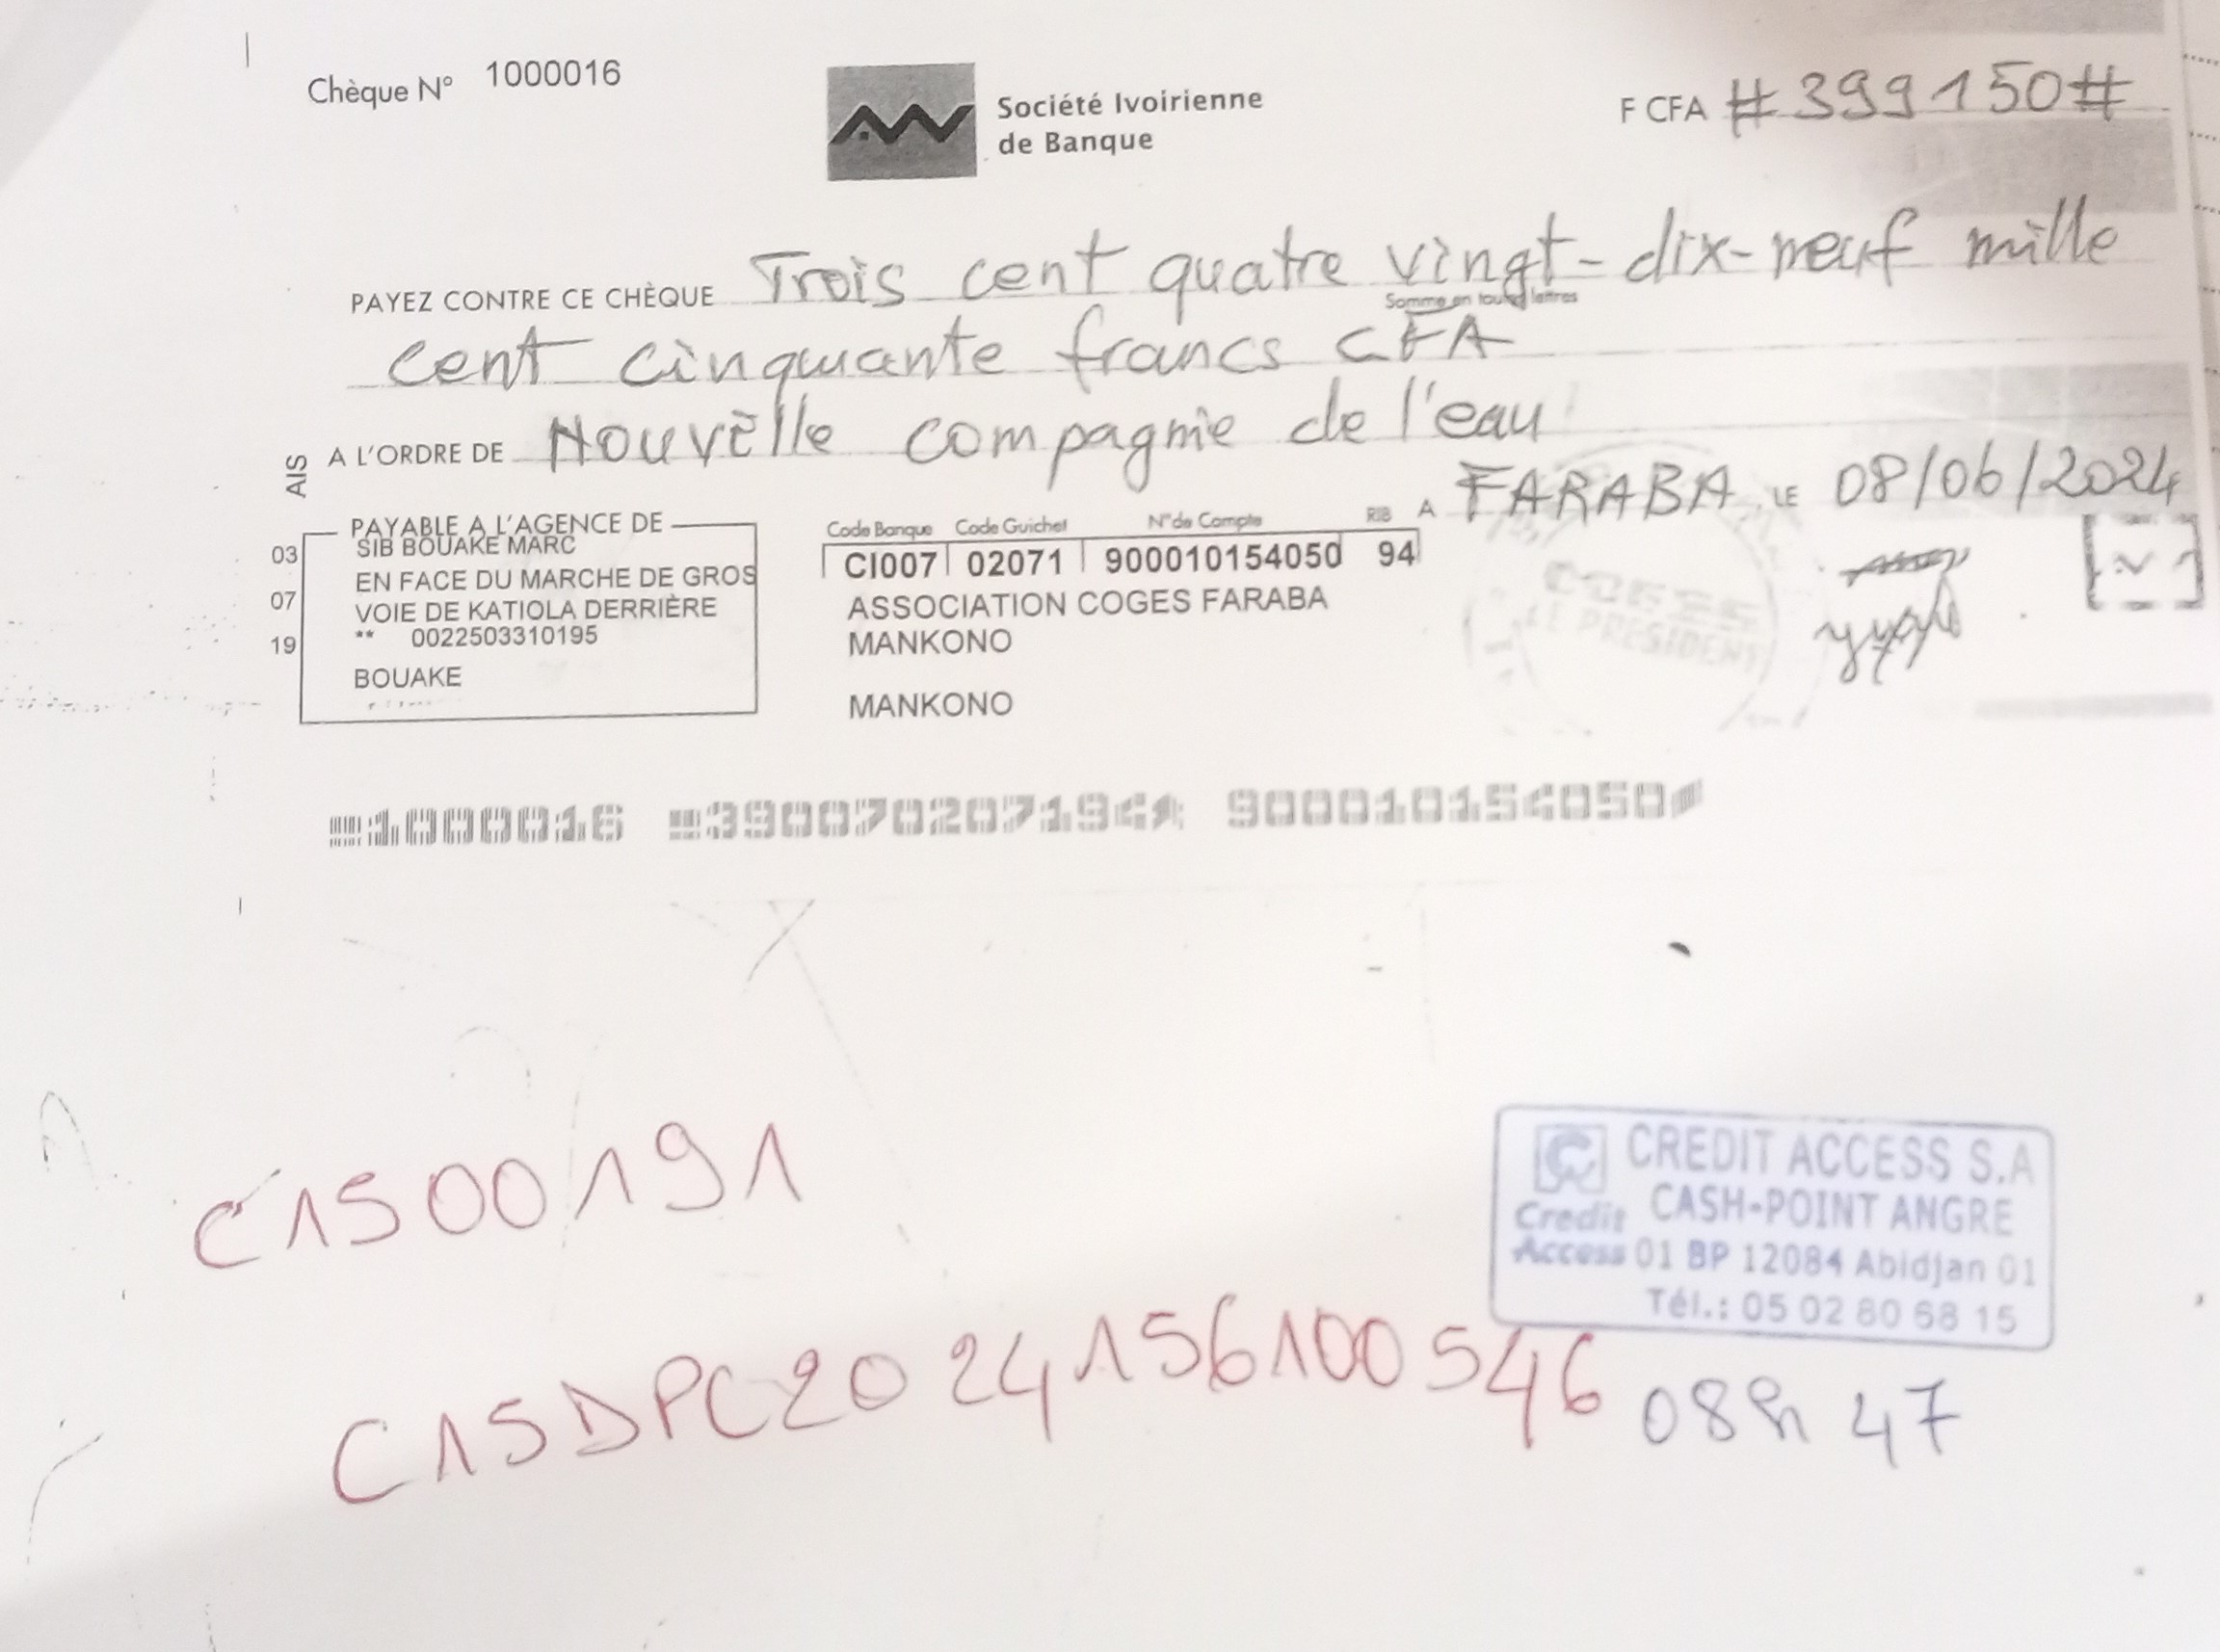 Chèque N° 1000016
Société Ivoirienne
de Banque
F CFA #399150#
PAYEZ CONTRE CE CHÈQUE Trois cent quatre vingt-dix-neuf mille
Somme en toutes lettres
cent cinquante francs CFA
A L'ORDRE DE Nouvelle compagnie de l'eau
A FARABA, LE 08/06/2024
AIS
PAYABLE A L'AGENCE DE
SIB BOUAKE MARC
EN FACE DU MARCHE DE GROS
VOIE DE KATIOLA DERRIÈRE
** 0022503310195
BOUAKE
03
07
19
Code Banque Code Guichet N° de Compte RIB
CI007 02071 900010154050 94
ASSOCIATION COGES FARABA
MANKONO
MANKONO
COGES
LE PRESIDENT
1000016 390070207194 900010154050
C1500191
CREDIT ACCESS S.A
CASH-POINT ANGRE
Credit
Access 01 BP 12084 Abidjan 01
Tél.: 05 02 80 68 15
C15DPC2024156100546
08h 47